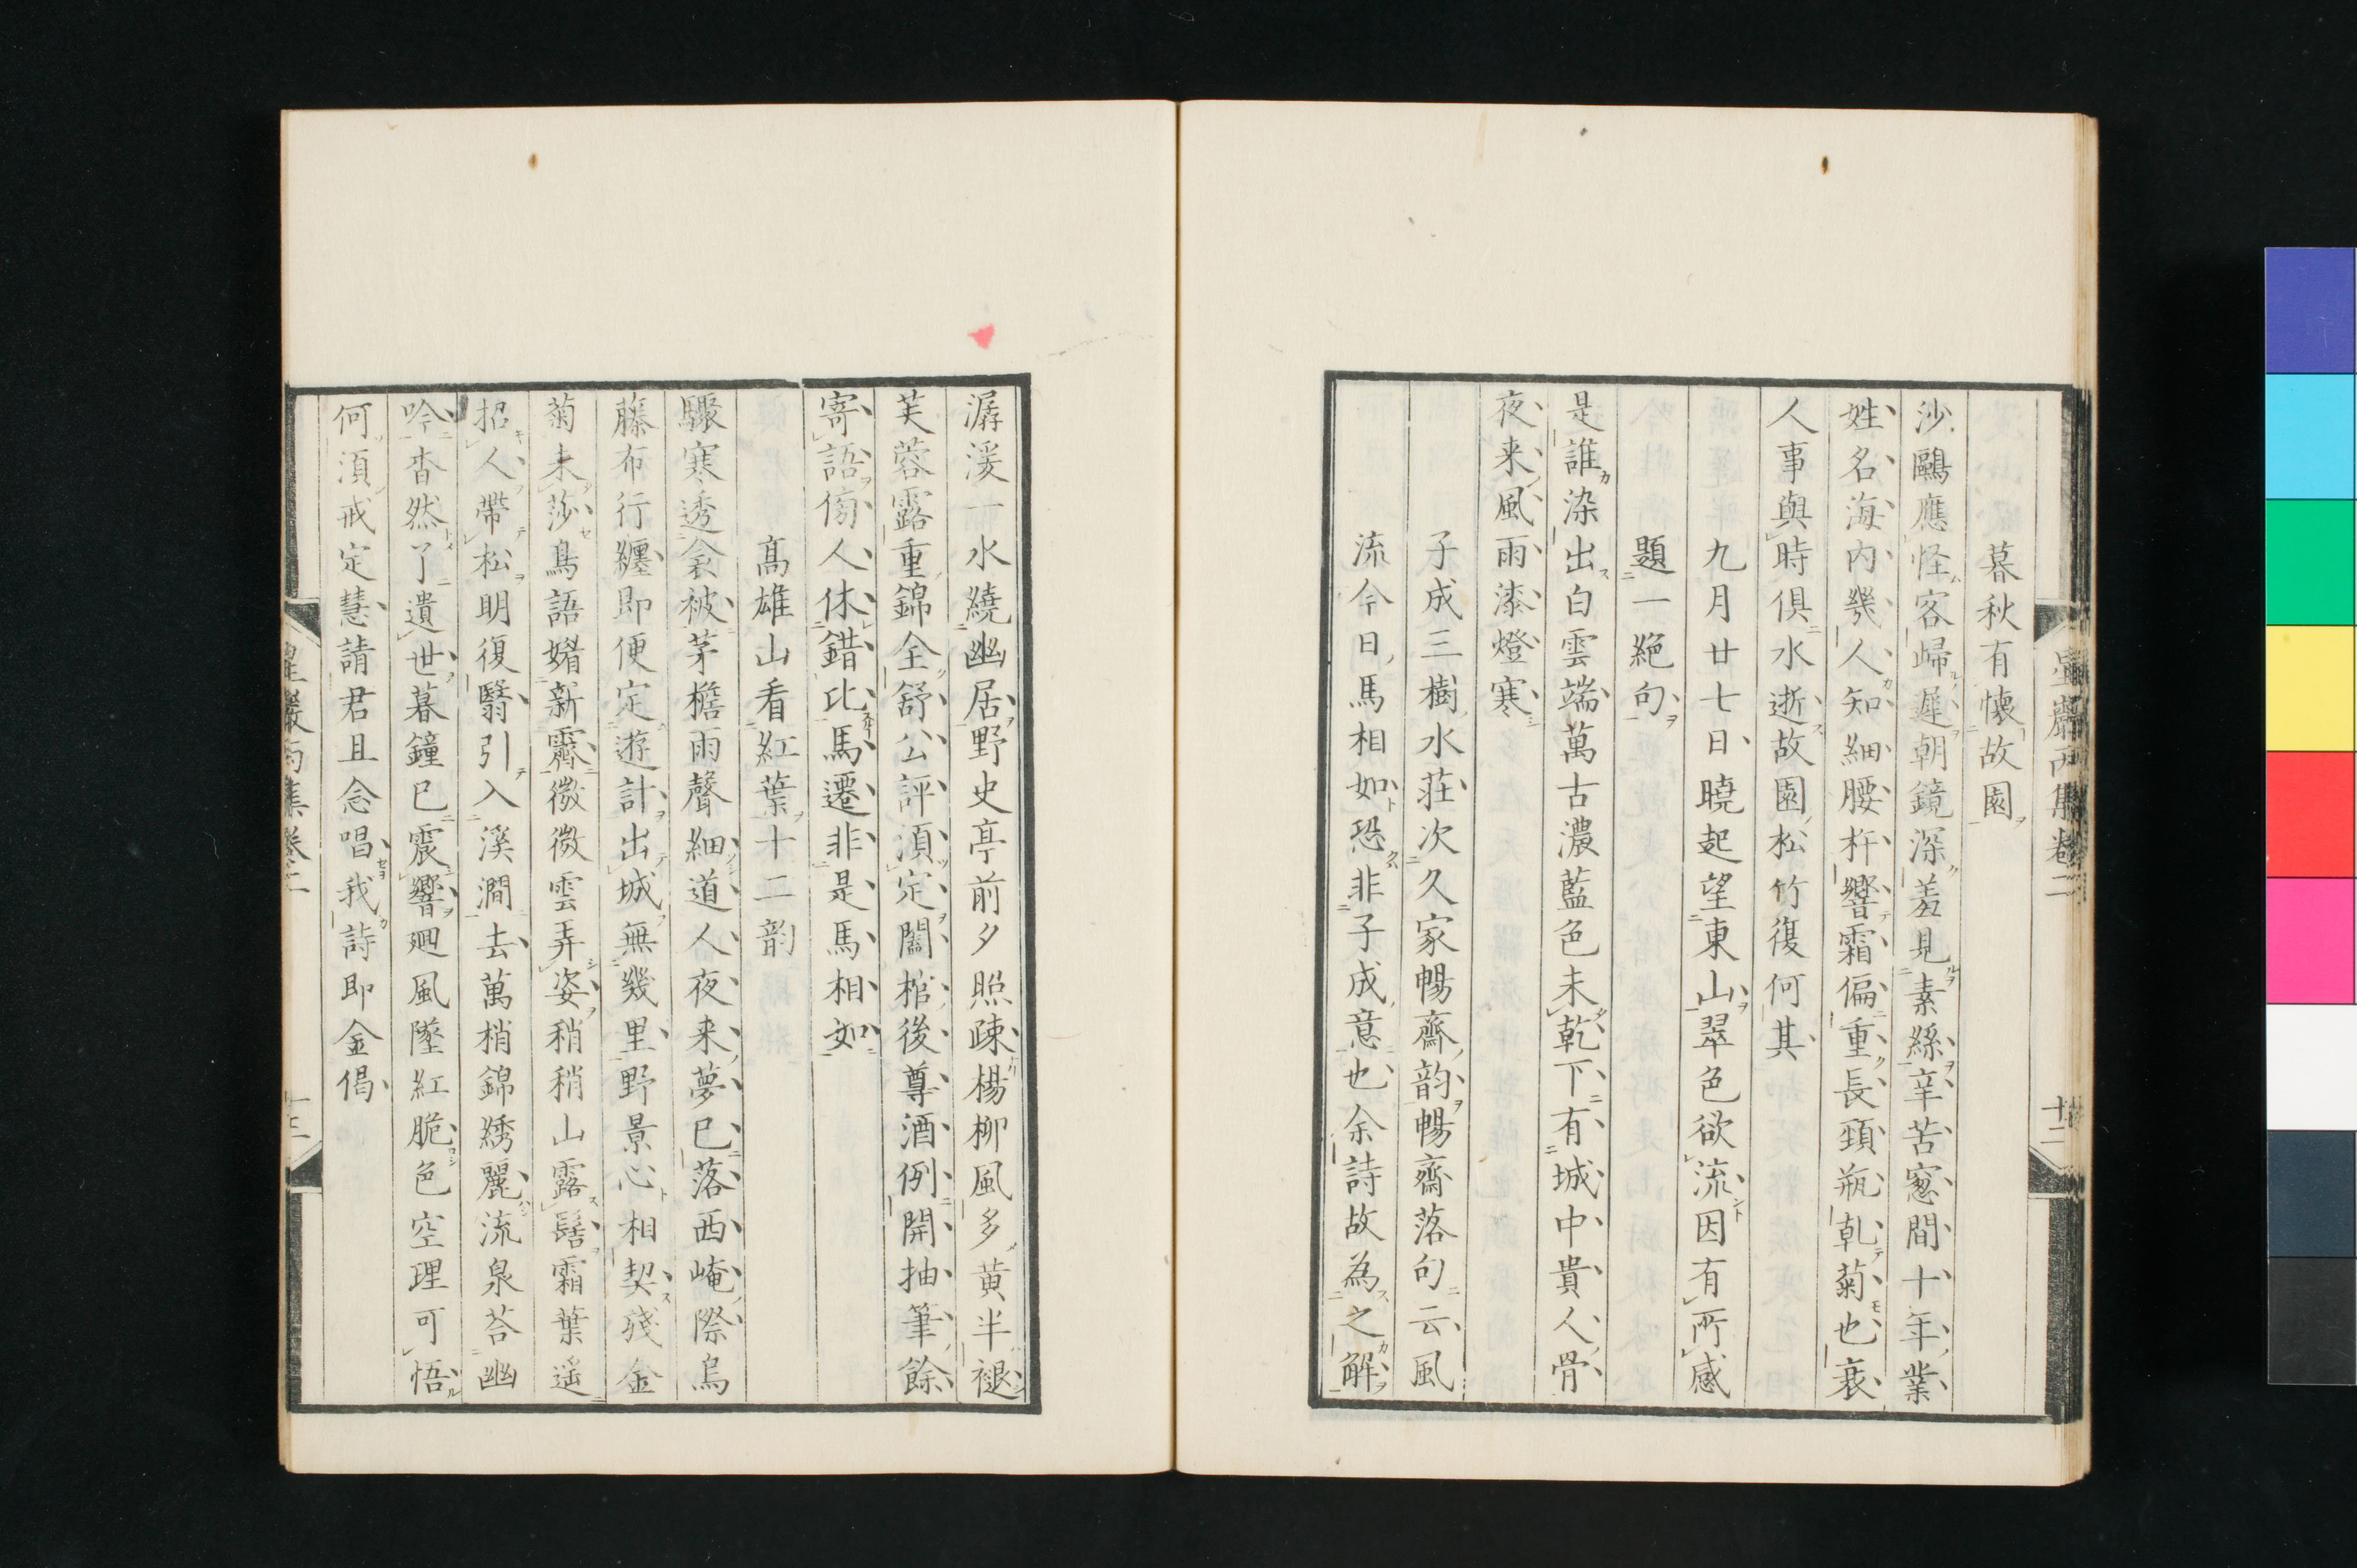 星巖丙集卷二
十二
暮秋有懷故園
沙鷗應怪客歸遲朝鏡深羞見素絲辛苦窓間十年業
姓名海内幾人知細腰杵響霜偏重長頸瓶乹菊也衰
人事與時俱水逝故園松竹復何其
九月廿七日曉起望東山翠色欲流因有所感
題一絶句
是誰染出白雲端萬古濃藍色未乾下有城中貴人骨
夜来風雨漆燈寒
子成三樹水莊次久家暢齋韵暢齋落句云風
流今日馬相如恐非子成意也余詩故為之解
潺湲一水繞幽居野史亭前夕照疎楊柳風多黄半褪
芙蓉露重錦全舒公評須定闔棺後尊酒例開抽筆餘
寄語傍人休錯比馬遷非是馬相如
髙雄山看紅葉十二韵
驟寒透衾被茅檐雨聲細道人夜来夢已落西崦際烏
藤布行纏即便定遊計出城無幾里野景心相契殘金
菊未莎鳥語媚新霽微微雲弄姿稍稍山露髻霜葉遥
招人帶松明復翳引入溪澗去萬梢錦綉麗流泉荅幽
吟杳然了遺世暮鐘已震響廻風墜紅脆色空理可悟
何須戒定慧請君且念唱我詩即金偈
星巖丙集卷二
十三